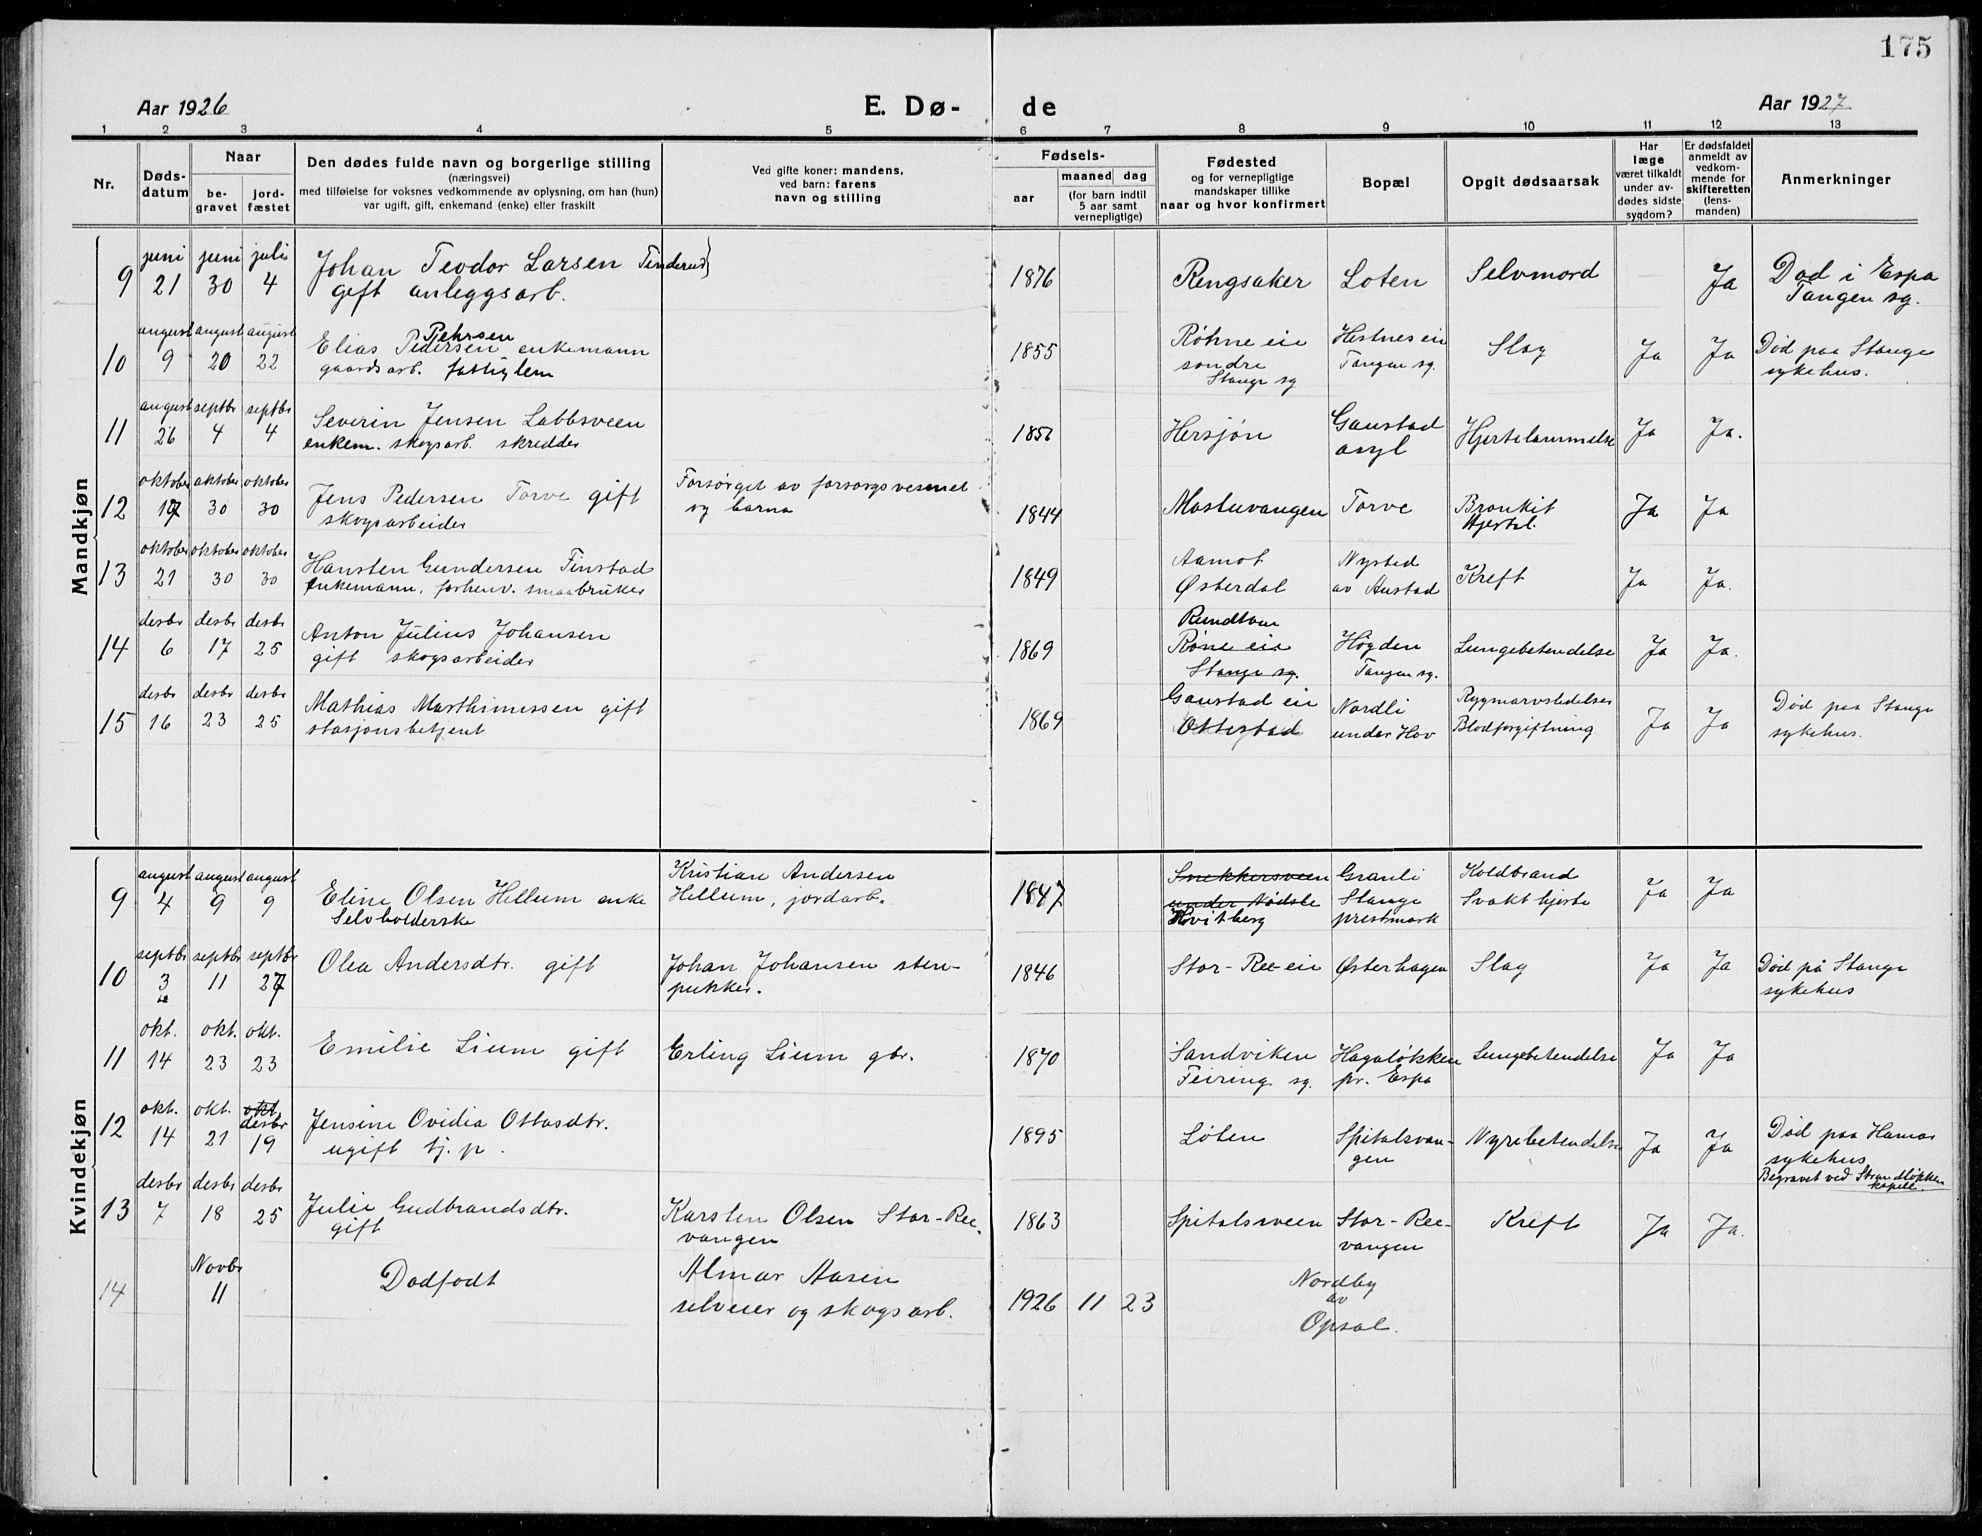 175
Aar 1926
E. Dø-
de
Aar 1927
1 2 3 4 5 6 7 8 9 10 11 12 13
Nr.
Døds-
datum
Naar
be-
gravet
jord-
fæstet
Den dødes fulde navn og borgerlige stilling
(næringsvei)
med tilføielse for voksnes vedkommende av oplysning, om han (hun)
var ugift, gift, enkemand (enke) eller fraskilt
Ved gifte koner: mandens,
ved barn: farens
navn og stilling
Fødsels-
aar
maaned dag
(for barn indtil
5 aar samt
vernepligtige)
Fødested
og for vernepligtige
mandskaper tillike
naar og hvor konfirmert
Bopæl
Opgit dødsaarsak
Har
læge
været tilkaldt
under av-
dødes sidste
sygdom?
Er dødsfaldet
anmeldt av
vedkom-
mende for
skifteretten
(lens-
manden)
Anmerkninger
Mandkjøn
juni juni juli
9 21 30 4
Johan Teodor Larsen Tinderud
gift anleggsarb.
1876 Ringsaker Løten Selvmord Ja
Død i Espa
Tangen sg.
august august august
10 9 20 22
Pehrsen
Elias Pedersen enkemann
gaardsarb. fattiglem
1855
Røhne eie
søndre
Stange sg
Hestnes eie
Tangen sg.
Slag Ja Ja
Død paa Stange
sykehus.
august septbr septbr
11 26 4 4
Severin Jensen Labbsveen
enkem. skogsarb. skredder
Hersjøn
Gaustad
asyl
Hjertelammelse Ja Ja.
oktober oktober oktober
12 17 30 30
Jens Pedersen Torve gift
skogsarbeider
Forsørget av forsorgsvesenet
og barna
1844 Mostuvangen Torve
Bronkit
Hjertel.
Ja Ja
oktober oktober oktober
13 21 30 30
Hansten Gundersen Finstad
enkemann, forhenv. smaabruker
1849
Aamot
Østerdal
Nysted
av Anstad
Kreft Ja Ja.
desbr desbr desbr
14 6 17 25
Anton Julius Johansen
gift skogsarbeider
1869
Rundtom
Røne eie
Stange sg.
Høgden
Tangen sg.
Lungebetendelse Ja Ja.
desbr desbr desbr
15 16 23 25
Mathias Marthinussen gift
stasjonsbetjent
1869
Gaustad eie
Ottestad
Nordli
under Hov
Rygmarvslidelse
Blodforgiftning
Ja Ja
Død paa Stange
sykehus.
Kvindekjøn
august august august
9 4 9 9
Eline Olsen Hellum enke
Selvholderske
Kristian Andersen
Hellum, jordarb.
1847
Snekkersveen
under Nødsle
Hvitberg
Granli
Stange
prestmark
Koldbrand
Svakt hjerte
Ja Ja
septbr septbr septbr
10 3 11 27
Olea Andersdtr. gift
Johan Johansen sten-
pukker.
1846 Stor-Ree-eie Østerhagen Slag Ja Ja
Død på Stange
sykehus
okt. okt. okt.
11 14 23 23
Emilie Lium gift
Erling Lium gbr.
1870
Sandviken
Feiring sg.
Hagaløkken
pr. Espa
Lungebetendelse Ja Ja
okt. okt. okt
desbr
12 14 21 19
Jensine Ovidia Ottosdtr.
ugift tj. p.
1895 Løten
Spitalsvan-
gen
Nyrebetendelse Ja Ja
Død paa Hamar
sykehus
Begravet ved Strandløkken
kapell.
desbr desbr desbr
13 7 18 25
Julie Gudbrandsdtr.
gift
Karsten Olsen Stor-Ree-
vangen
1863 Spitalsveen
Stor-Ree-
vangen
Kreft Ja Ja.
Novbr
14 11
Dødfødt
Almar Aasen
selveier og skogsarb.
1926 11 23
Nordby
av
Opsal.